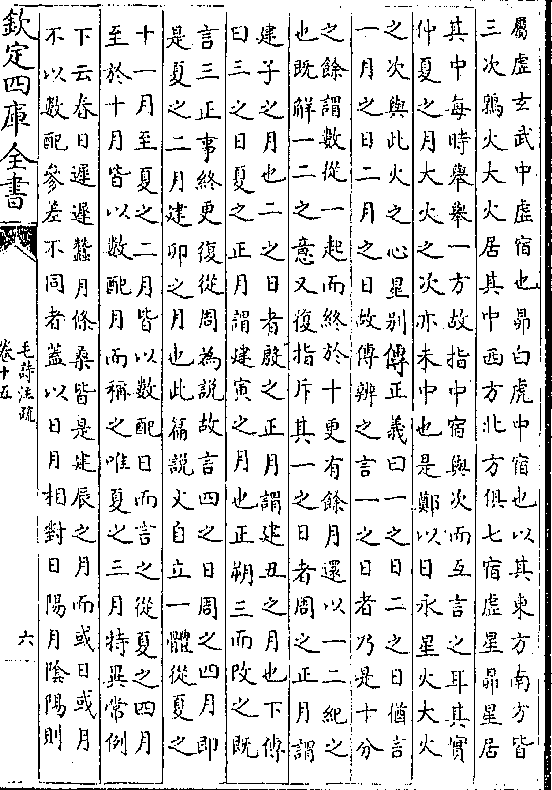 屬虛玄武中虛宿也昴白虎中宿也以其東方南方皆
三次鶉火大火居其中西方北方俱七宿虛星昴星居
其中每時舉舉一方故指中宿與次而互言之耳其實
仲夏之月大火之次亦未中也是鄭以日永星火大火
之次與此火之心星別傳正義曰一之日二之日猶言
一月之日二月之日故傳辨之言一之日者乃是十分
之餘謂數從一起而終於十更有餘月還以一二紀之
也既解一二之意又復指斥其一之日者周之正月謂
建子之月也二之日者殷之正月謂建丑之月也下傳
曰三之日夏之正月謂建寅之月也正朔三而改之既
言三正事終更復從周為說故言四之日周之四月即
是夏之二月建卯之月也此篇說文自立一體從夏之
十一月至夏之二月皆以數配日而言之從夏之四月
至於十月皆以數配月而稱之唯夏之三月特異常例
下云春日遲遲蠶月條桑皆是建辰之月而或日或月
不以數配參差不同者蓋以日月相對日陽月陰陽則
欽定四庫全書
毛詩注疏
卷十五
六